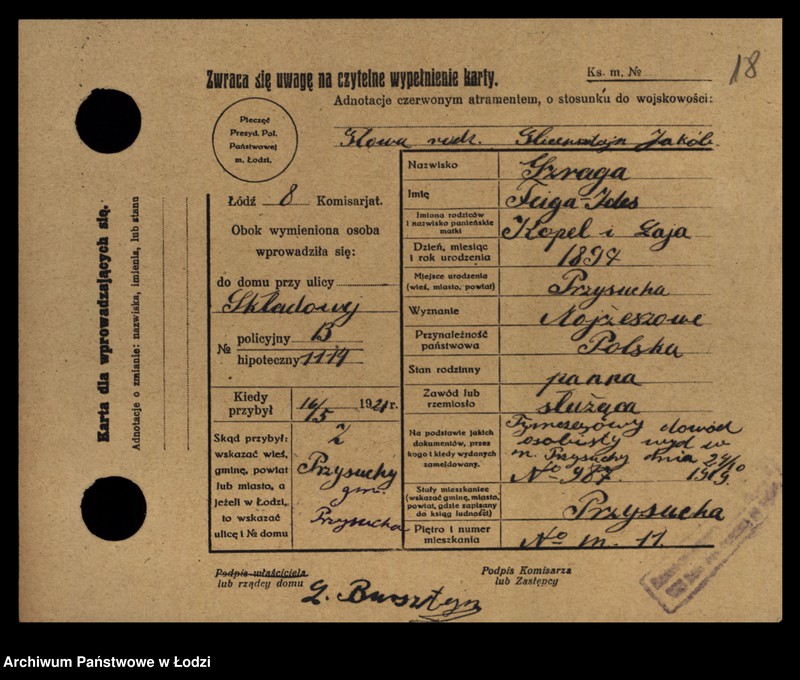 18
Zwraca się uwagę na czytelne wypełnienie karty.
Ks. m. №
Adnotacje czerwonym atramentem, o stosunku do wojskowości:
Pieczęć
Prezyd. Pol.
Państwowej
m. Łodzi.
Głowa rodz. Glicensztajn Jakób
Karta dla wprowadzających się.
Adnotacje o zmianie: nazwiska, imienia, lub stanu
Łódź 8 Komisarjat.
Obok wymieniona osoba
wprowadziła się:
do domu przy ulicy
Składowy
№ policyjny 13
hipoteczny 1119
Kiedy przybył 16/5 1921 r.
Skąd przybył:
wskazać wieś,
gminę, powiat
lub miasto, a
jeżeli w Łodzi,
to wskazać
ulicę i № domu
z
Przysuchy
gm.
Przysucha
Nazwisko Szraga
Imię Fejga-Ides
Imiona rodziców
i nazwisko panieńskie
matki
Kopel i Łaja
Dzień, miesiąc
i rok urodzenia
1897
Miejsce urodzenia
(wieś, miasto, powiat)
Przysucha
Wyznanie Mojżeszowe
Przynależność
państwowa
Polska
Stan rodzinny panna
Zawód lub
rzemiosło
służąca
Na podstawie jakich
dokumentów, przez
kogo i kiedy wydanych
zameldowany.
Tymczasowy dowód
osobisty wyd w
m. Przysuchy dnia 24/10
No 987 1919.
Stały mieszkaniec
(wskazać gminę, miasto,
powiat, gdzie zapisany
do ksiąg ludności)
Przysucha
Piętro i numer
mieszkania
No m. 11.
Podpis właściciela
lub rządcy domu
Podpis Komisarza
lub Zastępcy
L. Bursztyn
Archiwum Państwowe w Łodzi